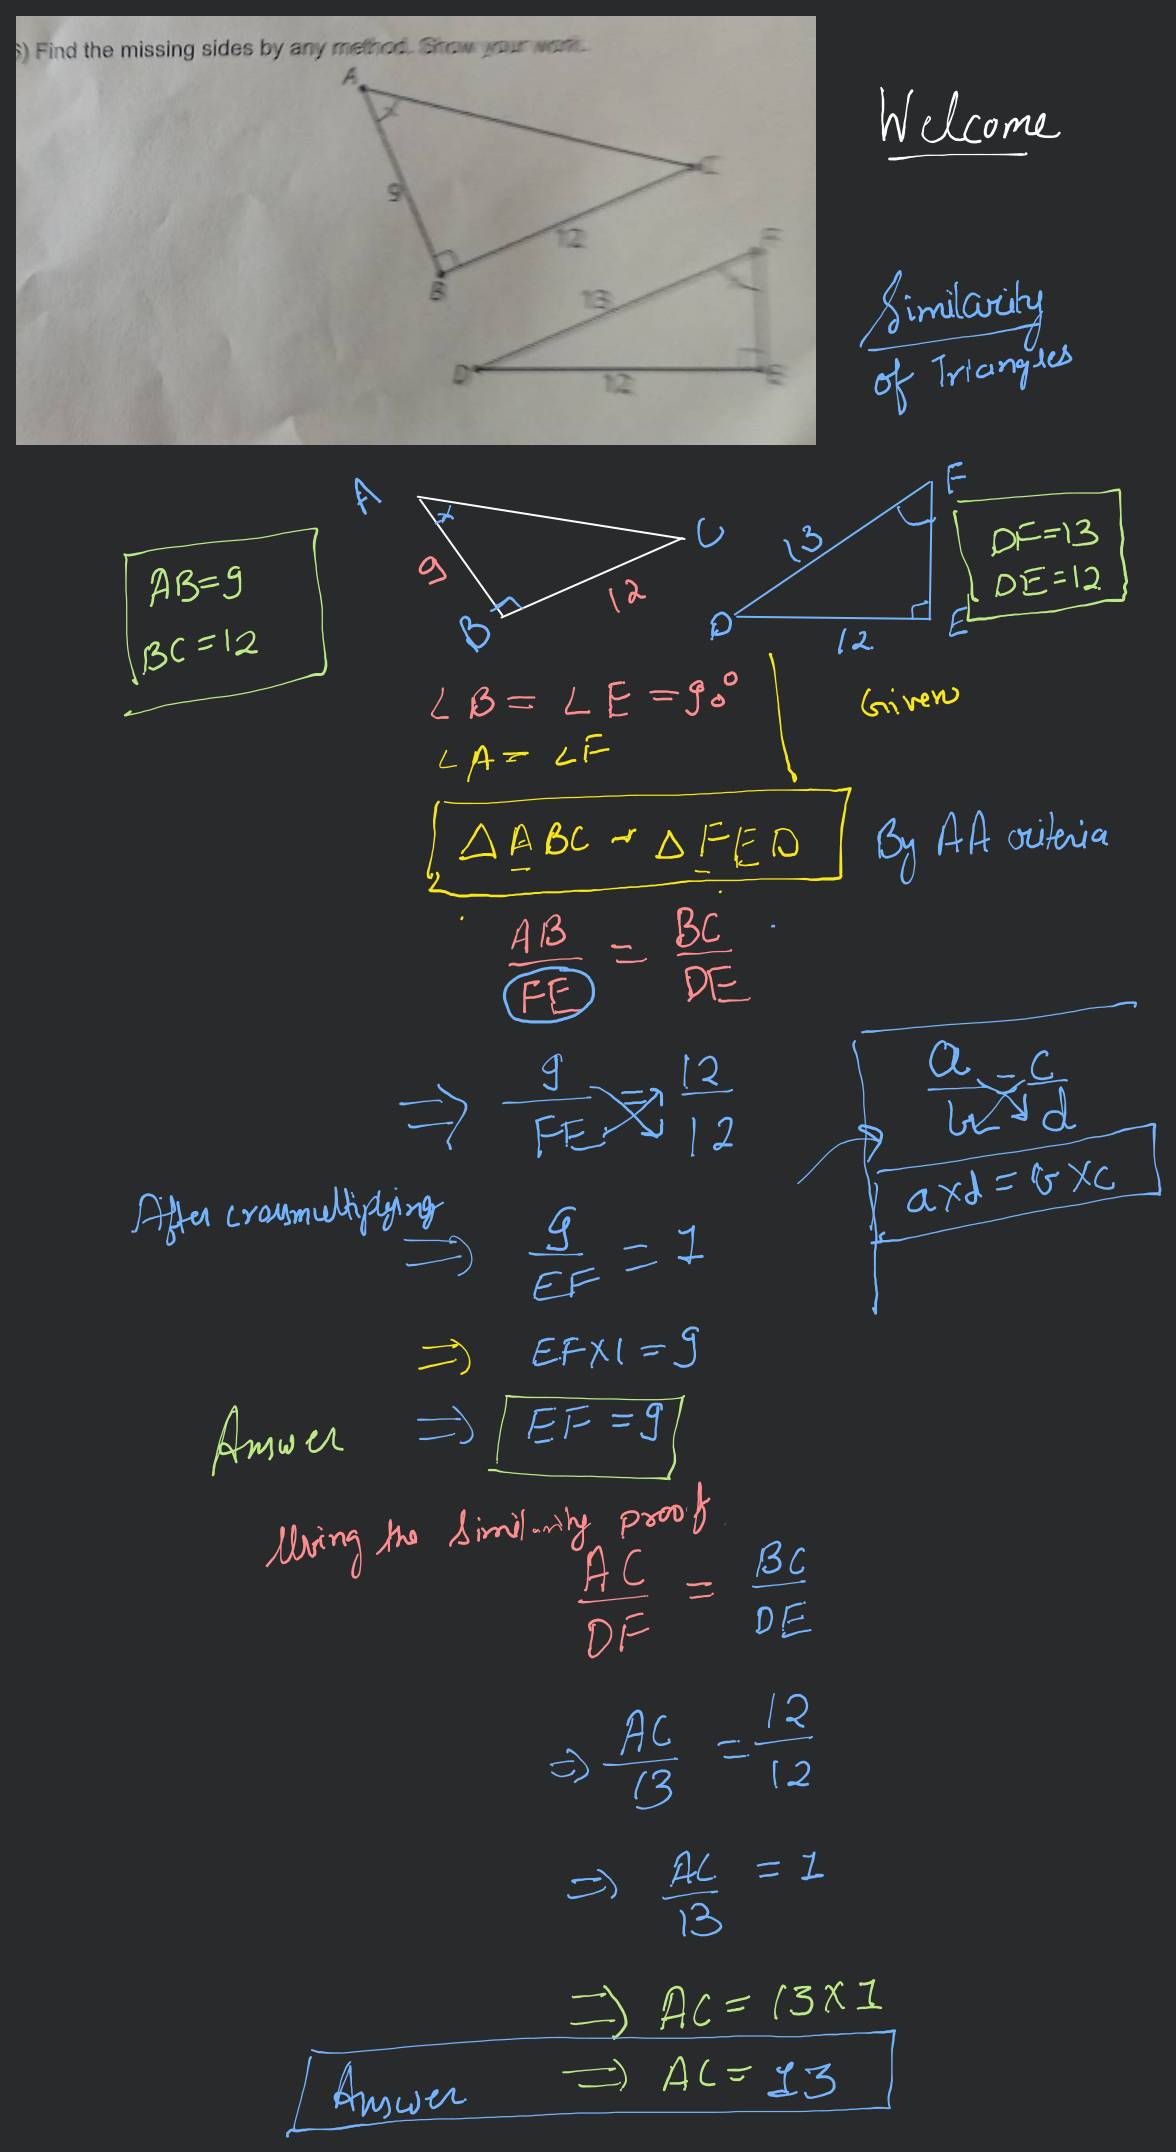 ) Find the missing sides by any method. Show your work.
A
x
9
C
12
B
F
13
D
12
E
Welcome
Similarity
of Triangles
A
x
C
9
12
B
F
13
D
12
E
AB=9
BC=12
DF=13
DE=12
∠B = ∠E = 90°
∠A = ∠F
Given
△ABC ~ △FED
By AA criteria
AB/FE = BC/DE
⇒ 9/FE = 12/12
a/b = c/d
a×d = b×c
After crossmultiplying
⇒ 9/EF = 1
⇒ EF×1 = 9
Answer ⇒ EF = 9
Using the Similarity proof
AC/DF = BC/DE
⇒ AC/13 = 12/12
⇒ AC/13 = 1
⇒ AC = 13×1
Answer ⇒ AC = 13